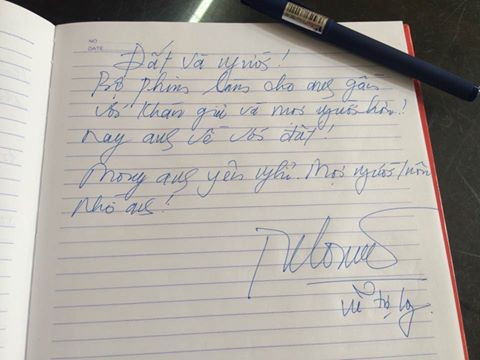 NO
DATE
Đất và người!
Bộ phim làm cho anh gần
với khán giả và mọi người hơn!
Nay anh về với đất!
Mong anh yên nghỉ. Mọi người luôn
nhớ anh!